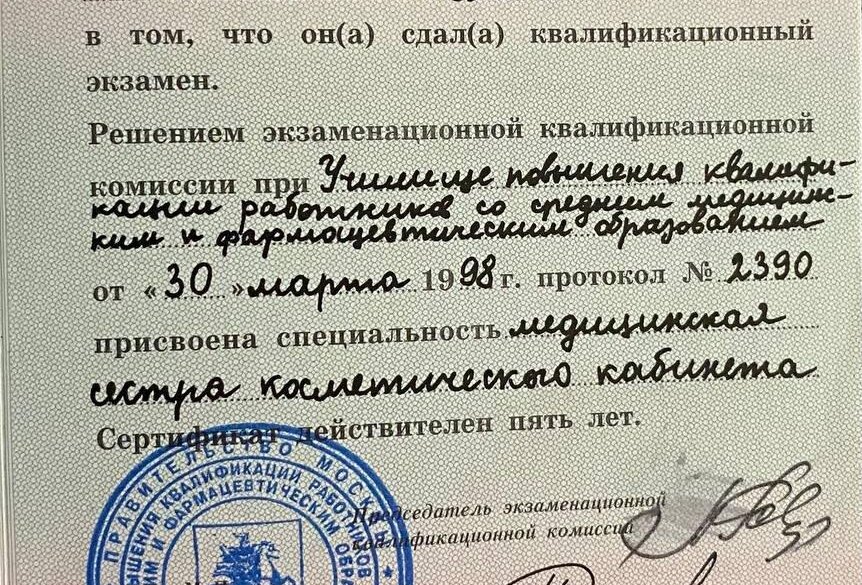 в том, что он(а) сдал(а) квалификационный
экзамен.
Решением экзаменационной квалификационной
комиссии при Училище повышения квалифи-
кации работников со средним медицин-
ким и фармацевтическим образованием
от «30» марта 1998 г. протокол № 2390
присвоена специальность медицинская
сестра косметического кабинета
Сертификат действителен пять лет.
ПРАВИТЕЛЬСТВО МОСК
ЫШЕНИЯ КВАЛИФИКАЦИИ РАБОТНИКОВ
ИМ И ФАРМАЦЕВТИЧЕСКИМ ОБРА
Председатель экзаменационной
квалификационной комиссии